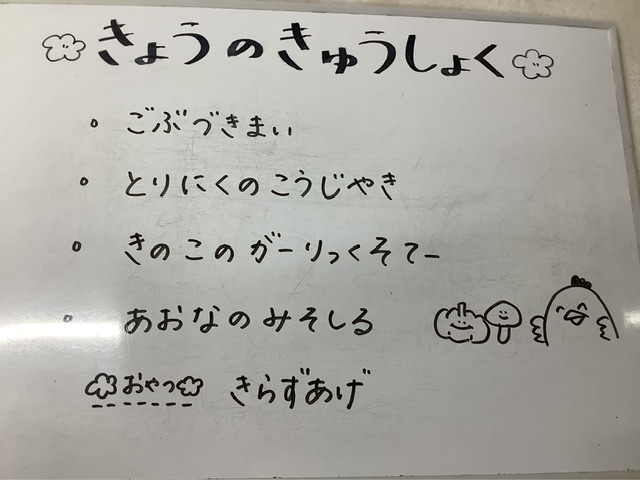 きょうのきゅうしょく
・ごぶづきまい
・とりにくのこうじやき
・きのこのがーりっくそてー
・あおなのみそしる
おやつ きらずあげ